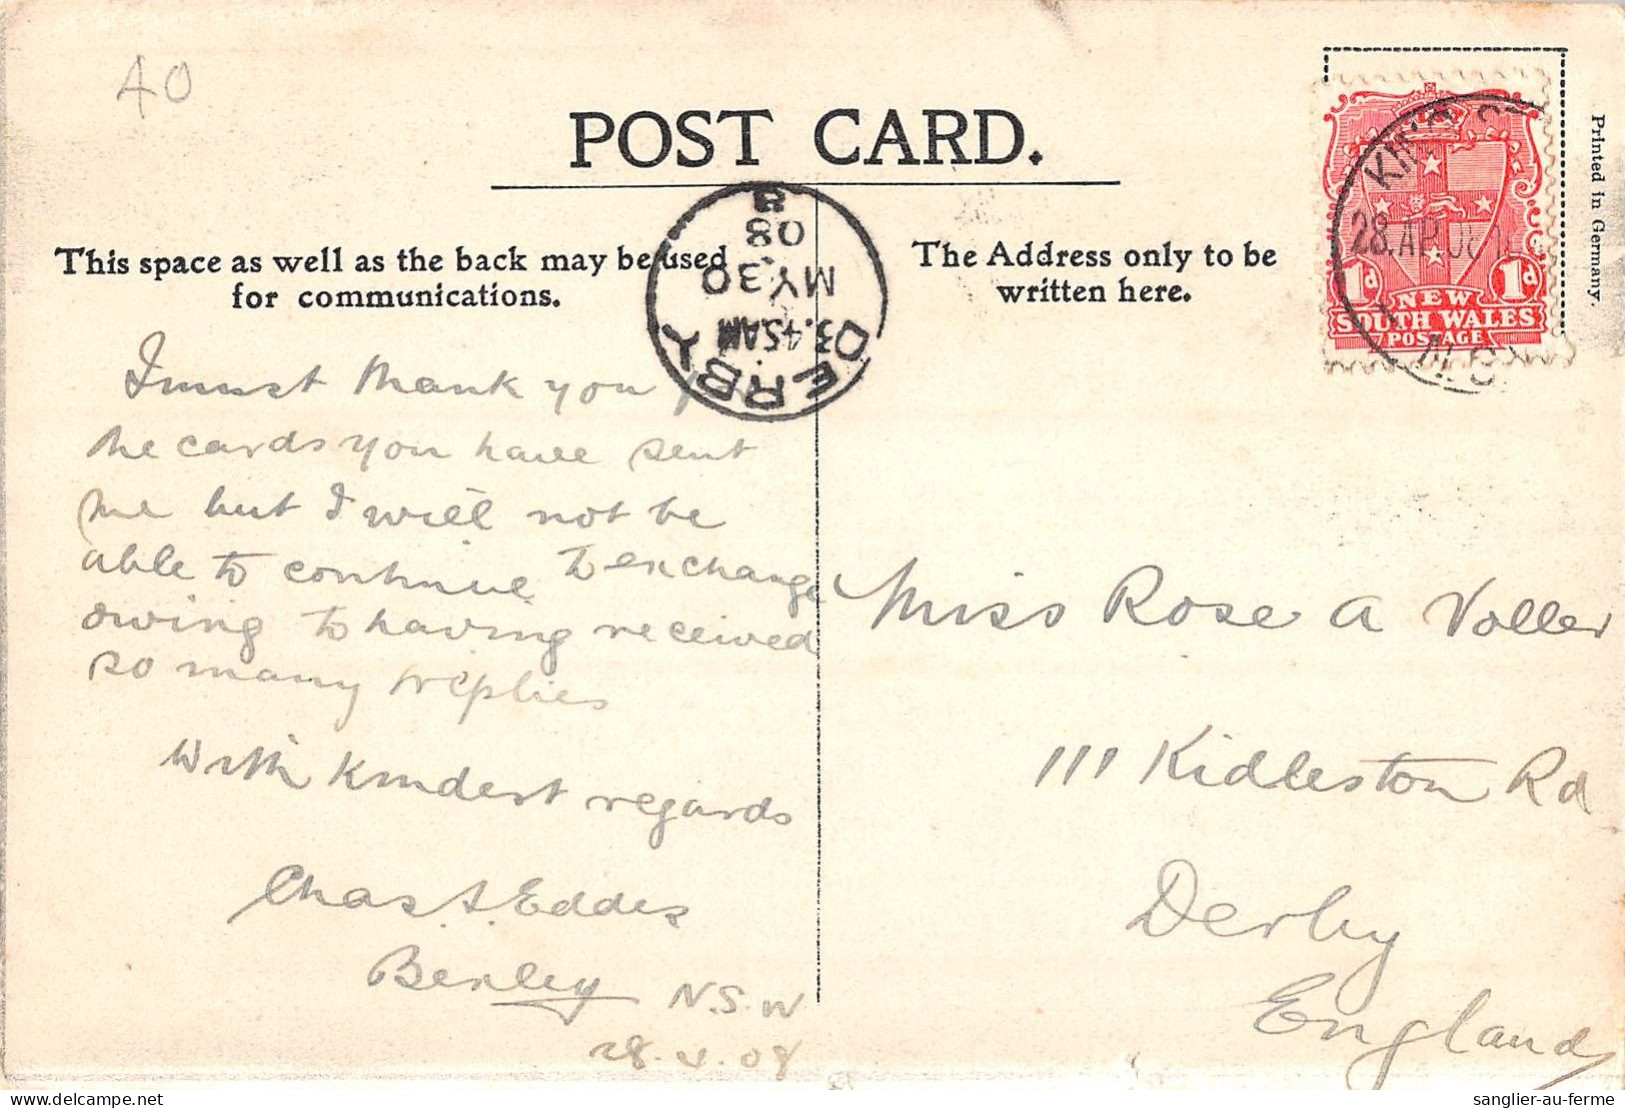 40
POST CARD.
This space as well as the back may be used
for communications.
The Address only to be
written here.
Printed in Germany.
28.AP.08
1d 1d
NEW
SOUTH WALES
POSTAGE
N.S.
DERBY
3.45AM
MY 30
08
I must thank you
the cards you have sent
me but I will not be
able to continue to exchange
owing to having received
so many replies
With kindest regards
Chas A. Eddes
Bexley N.S.W
28.4.08
Miss Rose A Voller
111 Kidleston Rd
Derby
England
sanglier-au-ferme